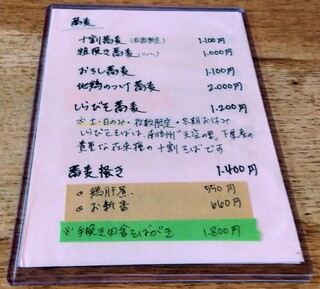 蕎麦
十割蕎麦(枚数限定) 1.100円
粗挽き蕎麦 1.000円
おろし蕎麦 1.100円
地鶏のつけ蕎麦 2.000円
しらびそ蕎麦 1.200円
※土・日のみ・枚数限定・冬期お休み
しらびそそばは、南信州"天空の里"下栗産の
貴重な在来種の十割そばです
蕎麦掻き 1.400円
。鶏肝煮 550円
。お新香 660円
※手挽き田舎そばがき 1.800円